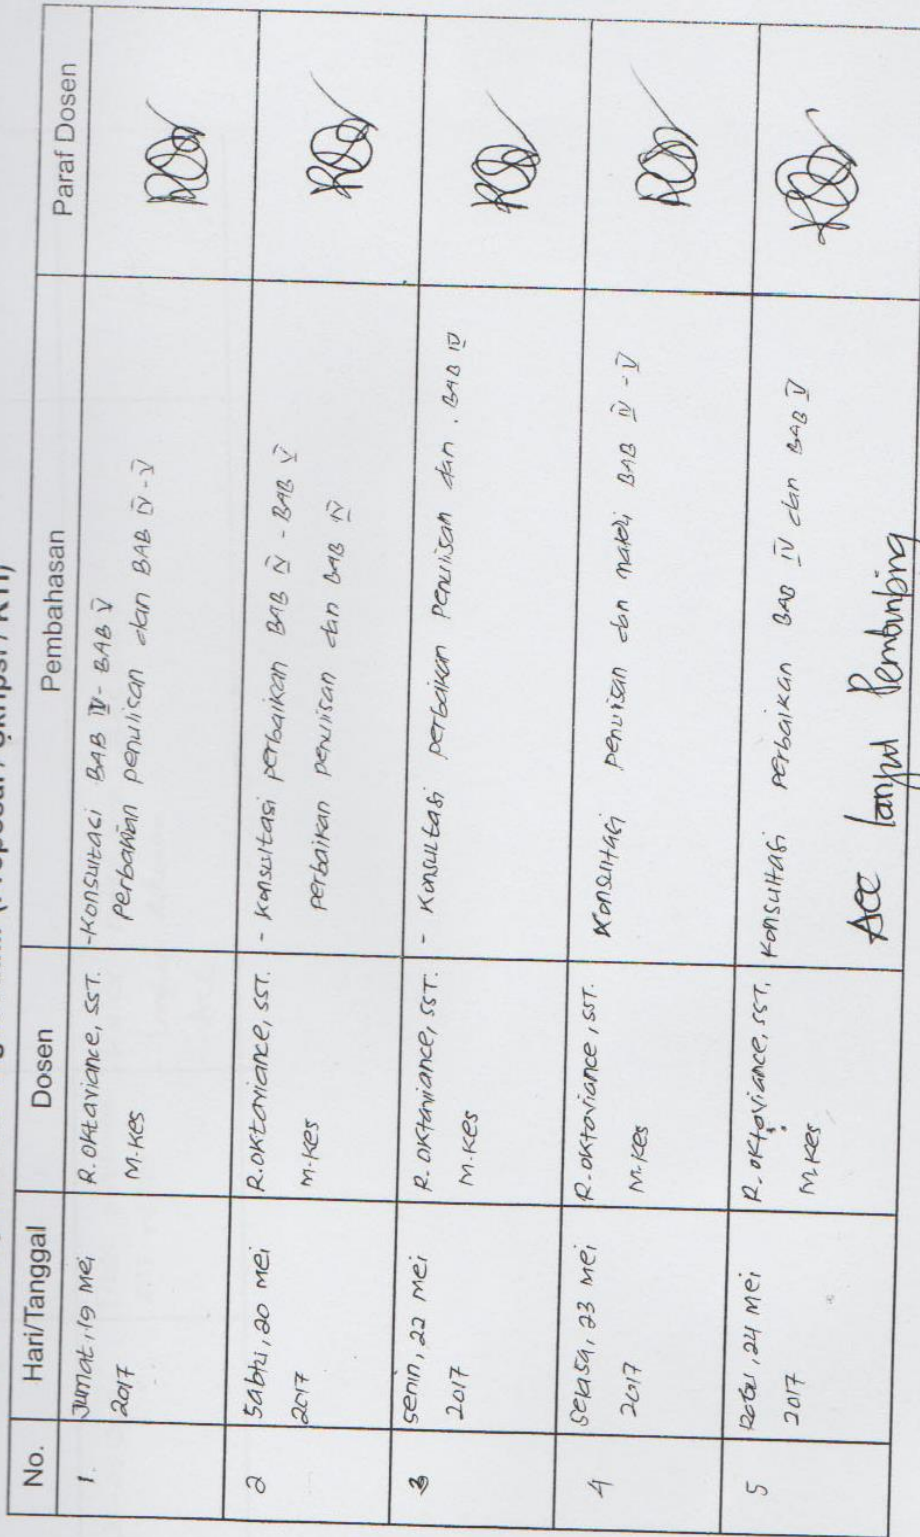 (Proposal / Skripsi / KTI)
No. Hari/Tanggal Dosen Pembahasan Paraf Dosen
1. Jumat, 19 Mei R. Oktaviance, SST. - Konsultasi BAB IV - BAB V
2017 M.Kes Perbaikan penulisan dan BAB IV - V
2 Sabtu, 20 Mei R. Oktaviance, SST. - Konsultasi perbaikan BAB IV - BAB V
2017 M.Kes perbaikan penulisan dan BAB IV
3 Senin, 22 Mei R. Oktaviance, SST. - Konsultasi perbaikan penulisan dan . BAB IV
2017 M.Kes
4 Selasa, 23 Mei R. Oktaviance, SST. Konsultasi penulisan dan materi BAB IV - V
2017 M.Kes
5 Rabu, 24 Mei R. Oktaviance, SST, Konsultasi perbaikan BAB IV dan BAB V
2017 M.Kes
Acc Pembimbing